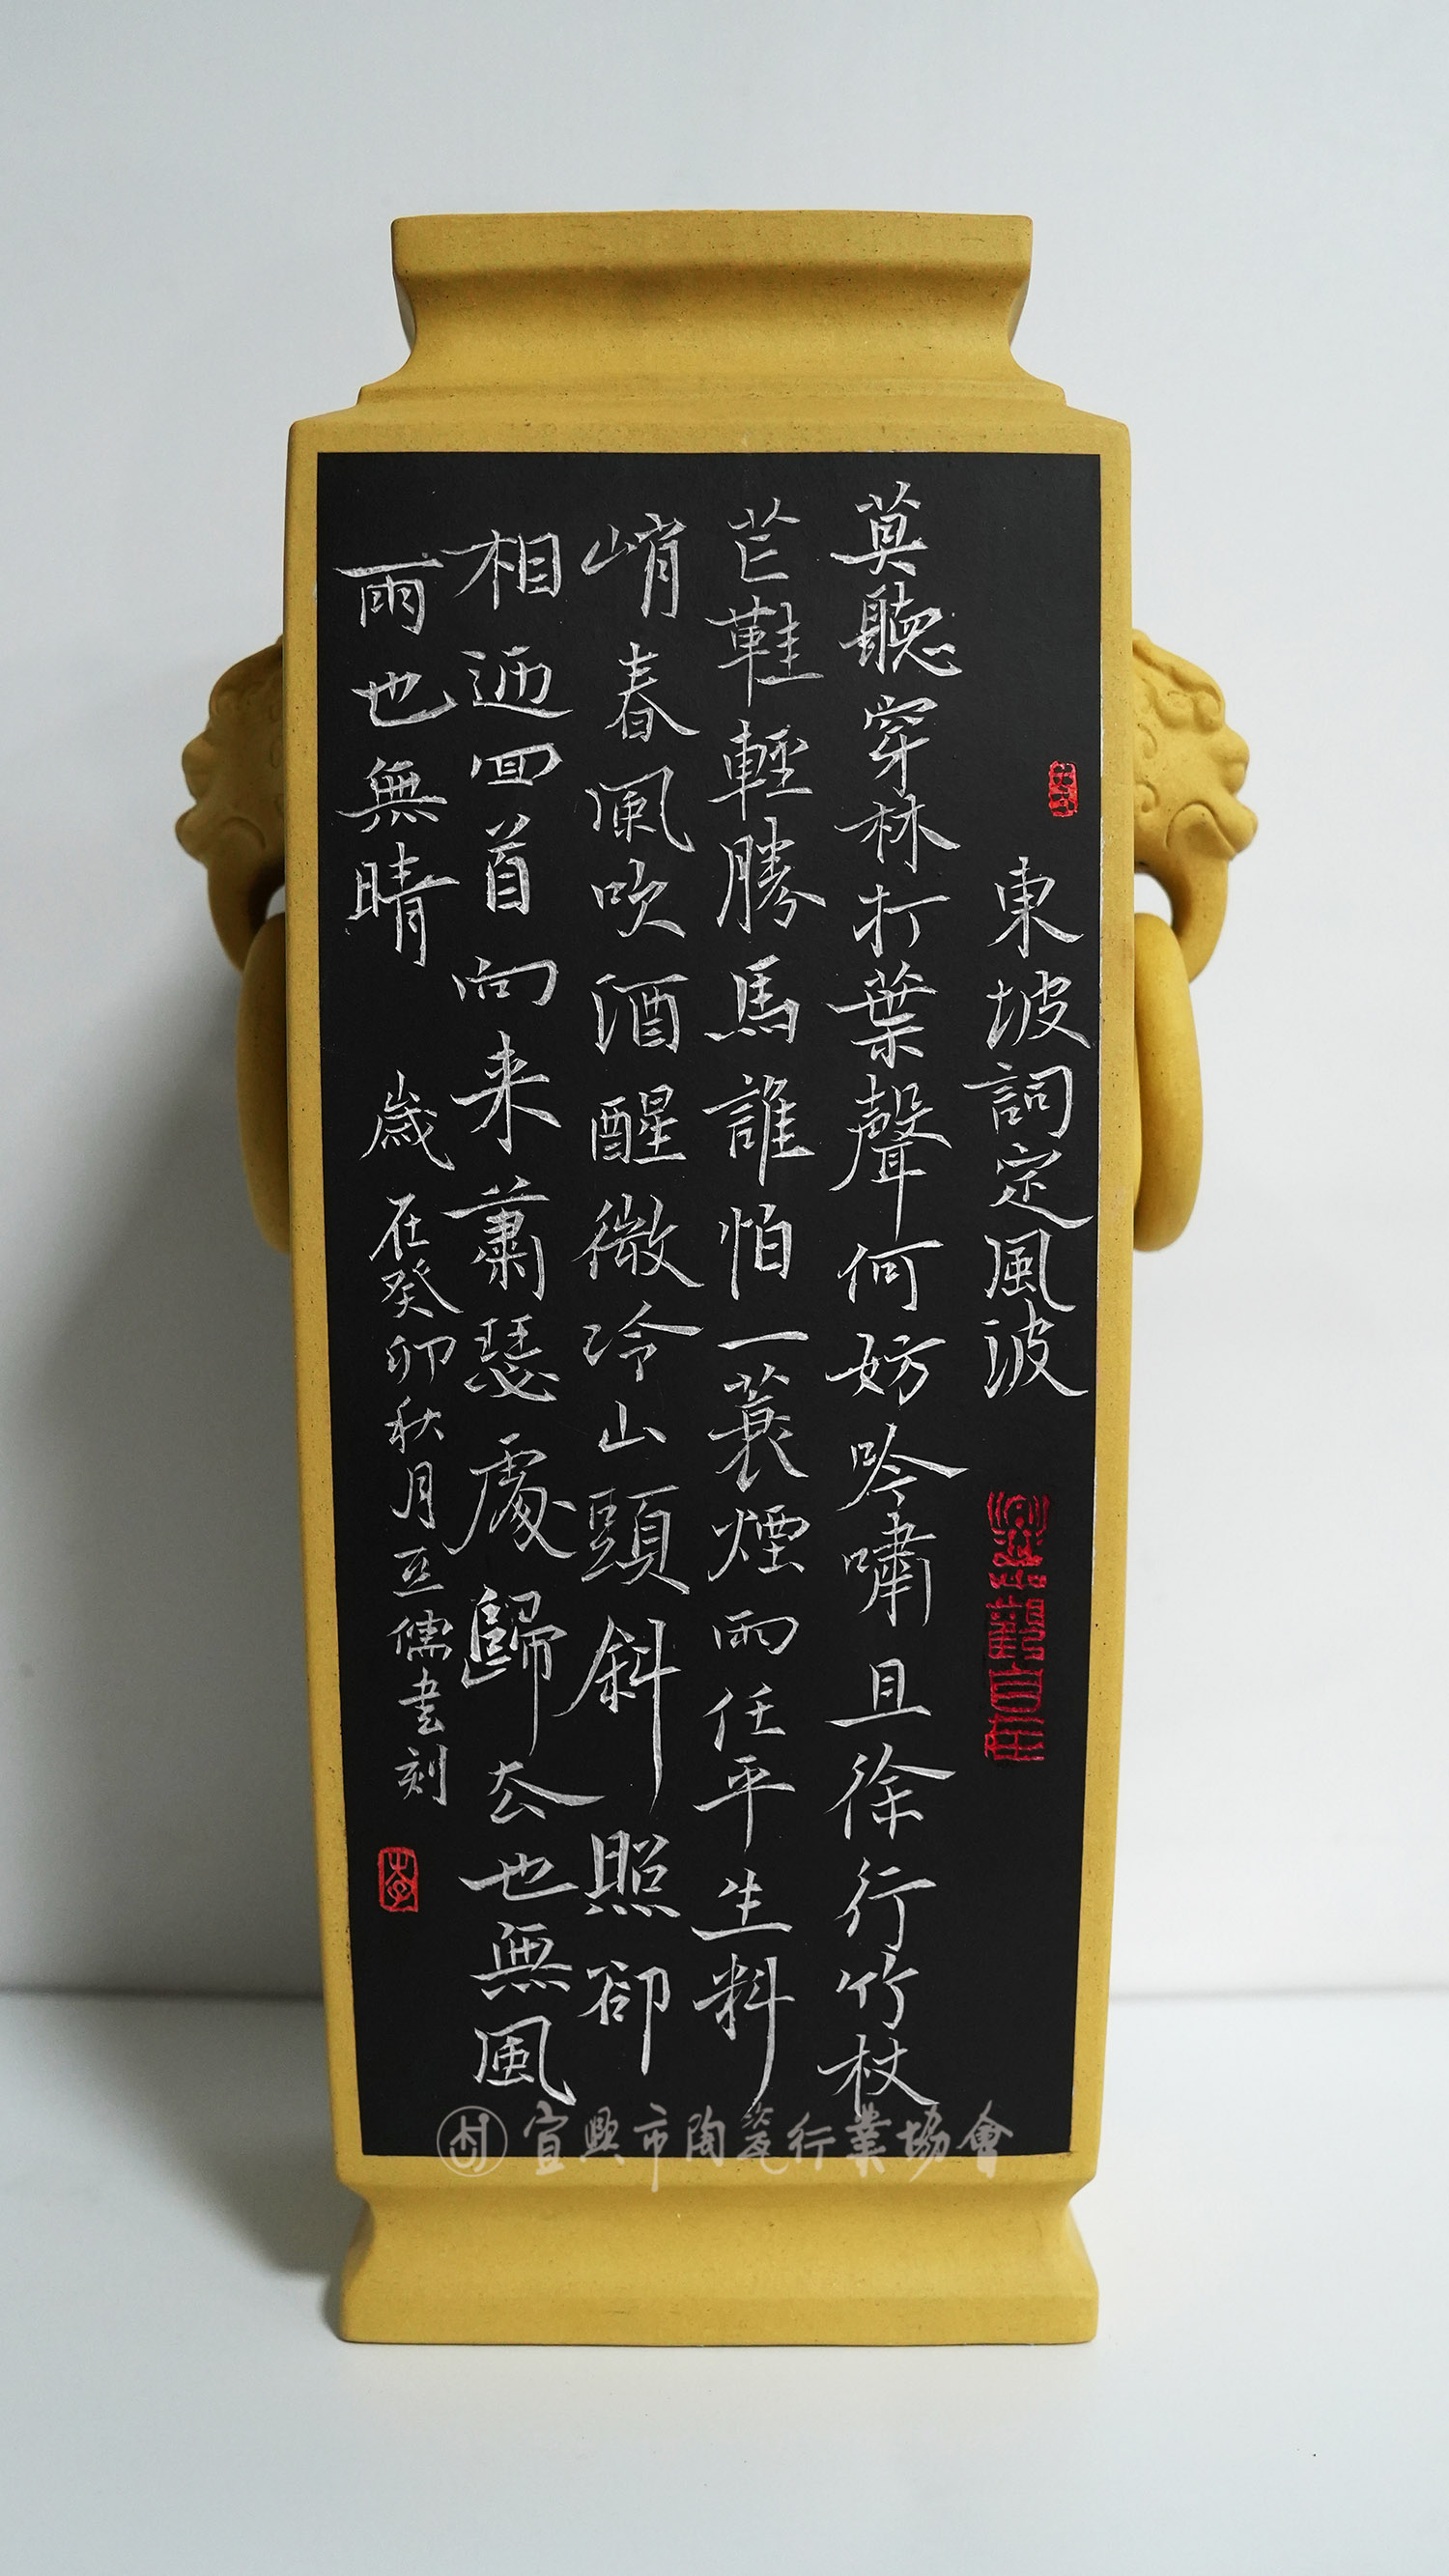 東坡詞定風波
莫聽穿林打葉聲何妨吟嘯且徐行竹杖
芒鞋輕勝馬誰怕一蓑煙雨任平生料
峭春風吹酒醒微冷山頭斜照卻
相迊回首向来蕭瑟處歸去也無風
雨也無晴 歲在癸卯秋月互儒書刻
宜興市陶瓷行業協會